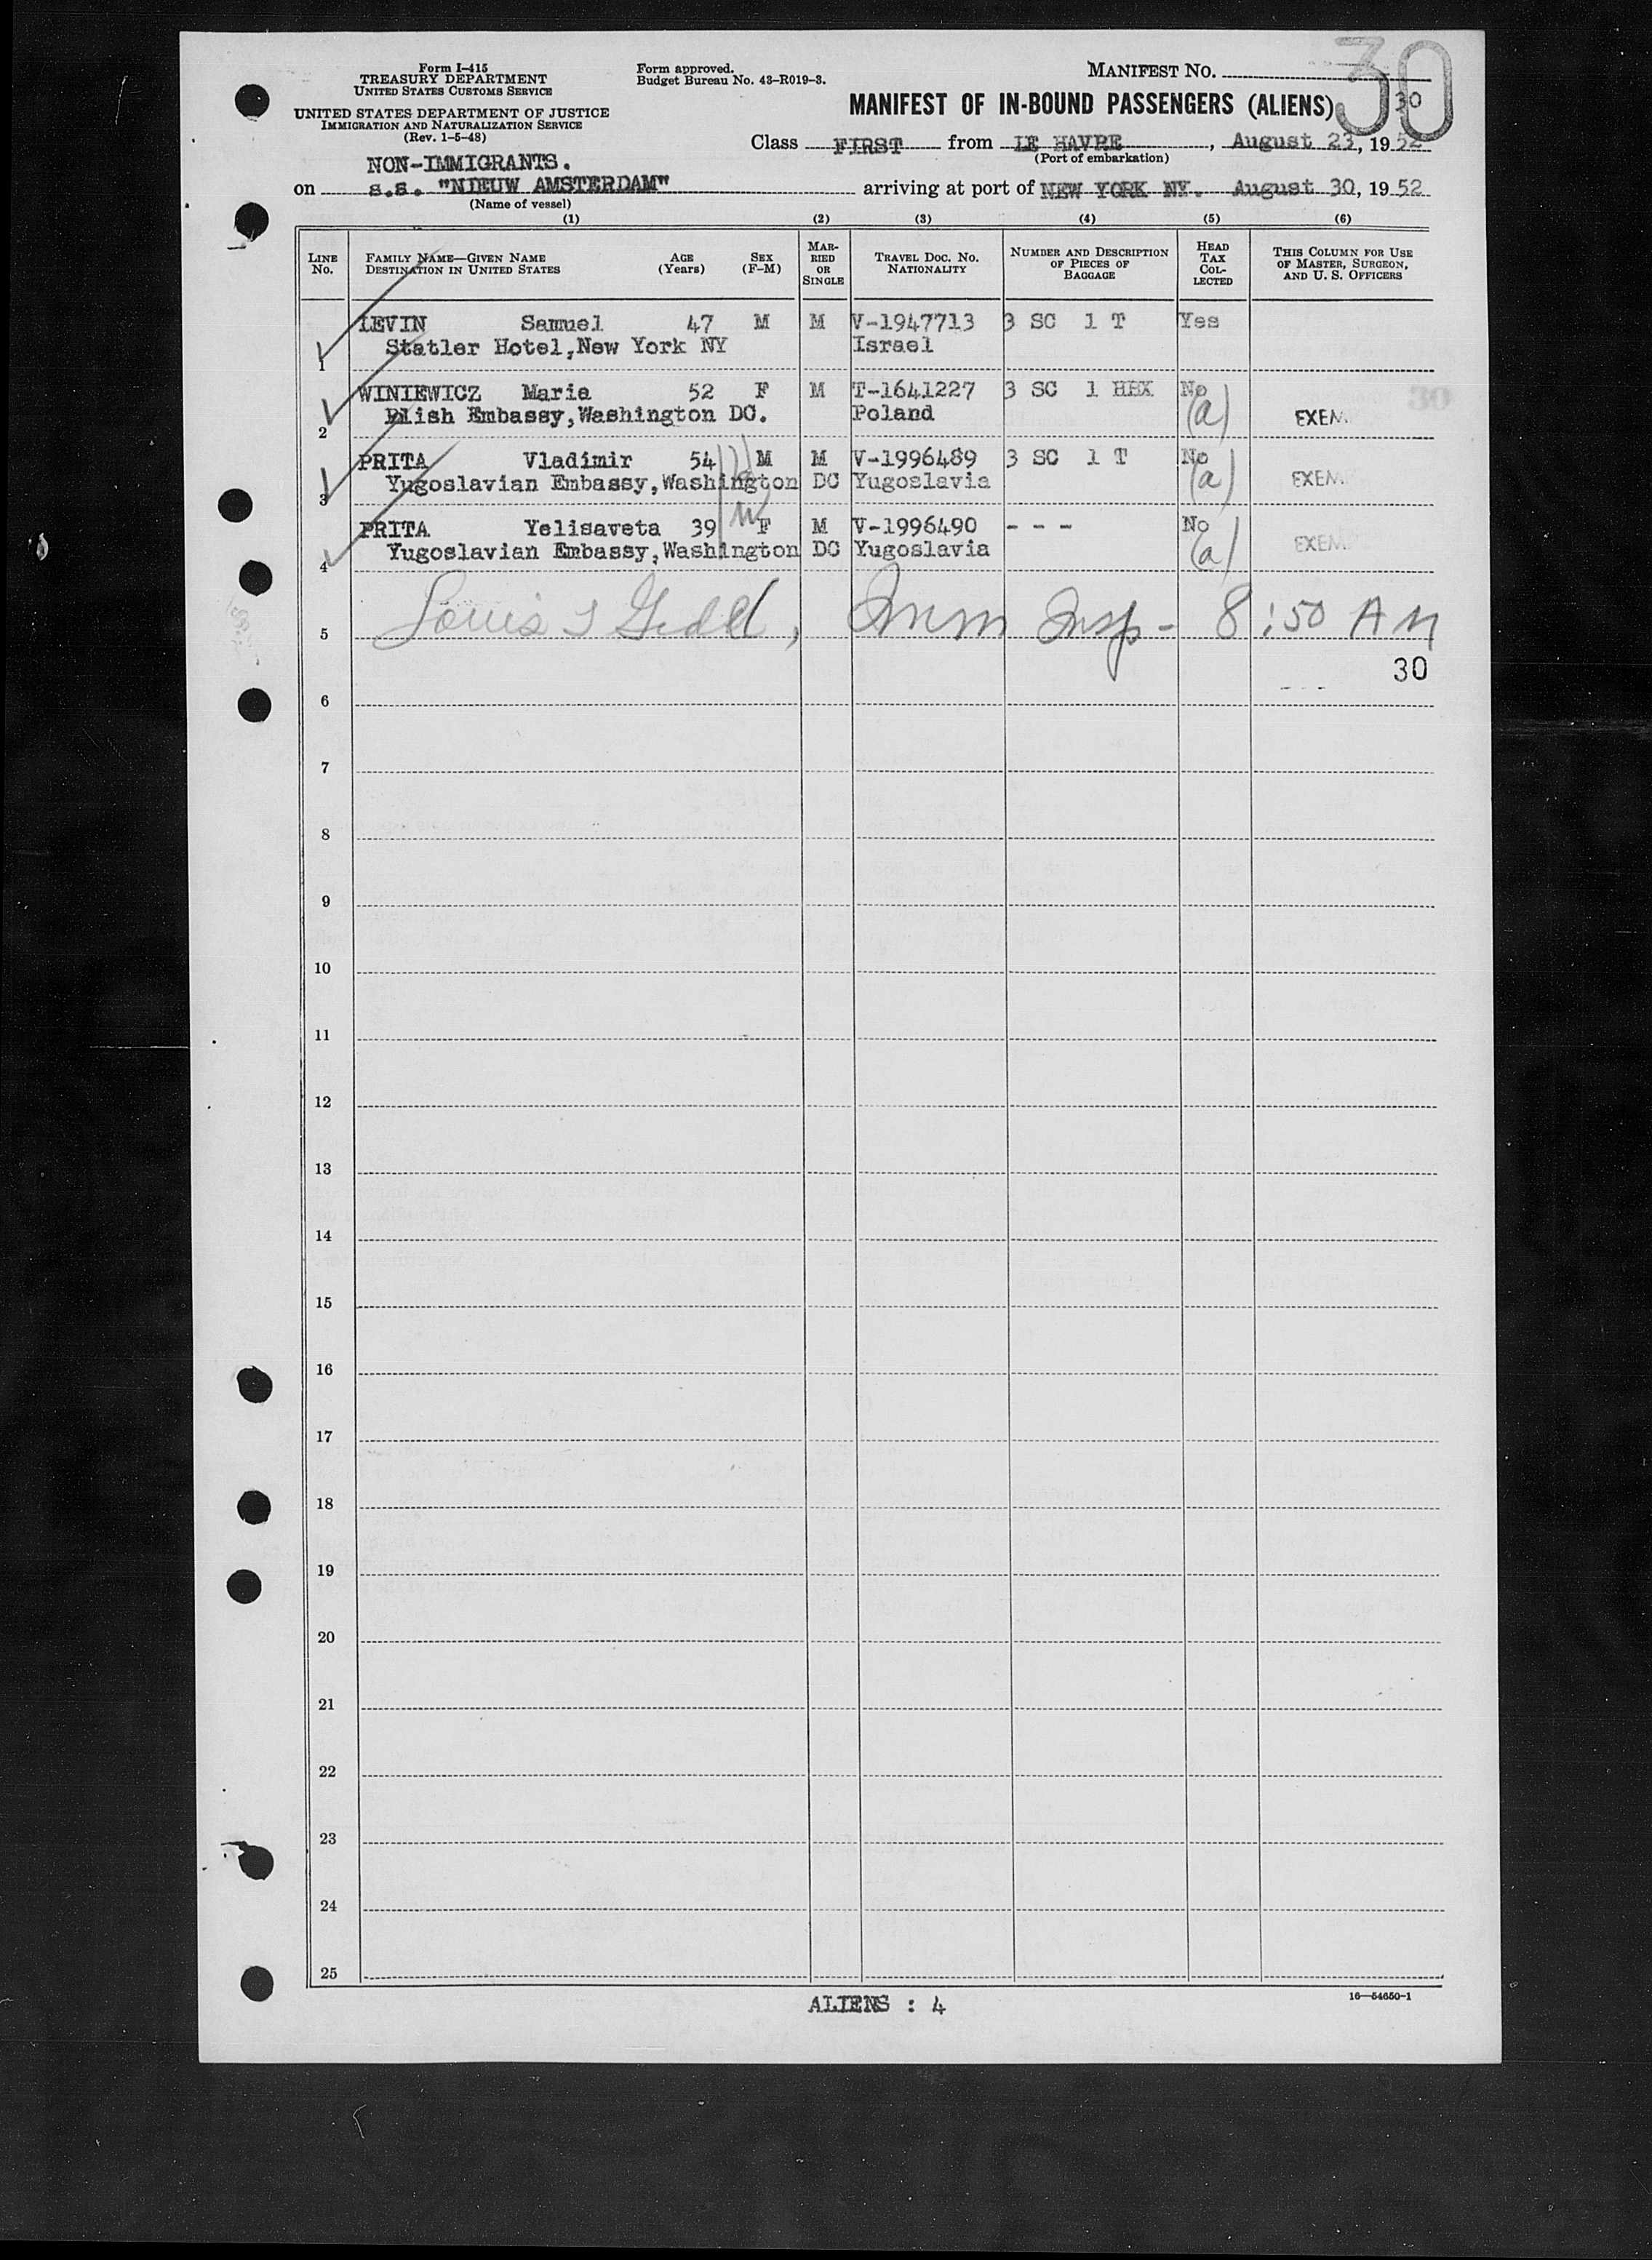 Form I-415
TREASURY DEPARTMENT
UNITED STATES CUSTOMS SERVICE
UNITED STATES DEPARTMENT OF JUSTICE
IMMIGRATION AND NATURALIZATION SERVICE
(Rev. 1-5-48)
Form approved.
Budget Bureau No. 43-R019-3.
MANIFEST NO.
30
MANIFEST OF IN-BOUND PASSENGERS (ALIENS)
30
Class FIRST from LE HAVRE, August 23, 1952
(Port of embarkation)
NON-IMMIGRANTS.
on s.s. "NIEUW AMSTERDAM" arriving at port of NEW YORK NY. August 30, 1952
(Name of vessel)
(1) (2) (3) (4) (5) (6)
LINE No. FAMILY NAME—GIVEN NAME DESTINATION IN UNITED STATES AGE (Years) SEX (F-M) MARRIED OR SINGLE TRAVEL DOC. NO. NATIONALITY NUMBER AND DESCRIPTION OF PIECES OF BAGGAGE HEAD TAX COLLECTED THIS COLUMN FOR USE OF MASTER, SURGEON, AND U. S. OFFICERS
LEVIN Samuel 47 M M V-1947713 3 SC 1 T Yes
1 Statler Hotel,New York NY Israel
WINIEWICZ Maria 52 F M T-1641227 3 SC 1 HBX No
2 Plish Embassy,Washington DC. Poland (a) EXEM
30
PRITA Vladimir 54 M M V-1996489 3 SC 1 T No
3 Yugoslavian Embassy,Washington DC Yugoslavia (a) EXEM
PRITA Yelisaveta 39 F M V-1996490 - - - No
4 Yugoslavian Embassy,Washington DC Yugoslavia (a) EXEM
5 Louis Imm Insp - 8:50 AM
30
6
7
8
9
10
11
12
13
14
15
16
17
18
19
20
21
22
23
24
25
ALIENS : 4
16—54650-1